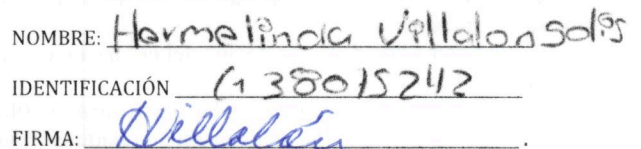 NOMBRE: Hermelinda Villalon Solis
IDENTIFICACIÓN G38015242
FIRMA: HVillalón.